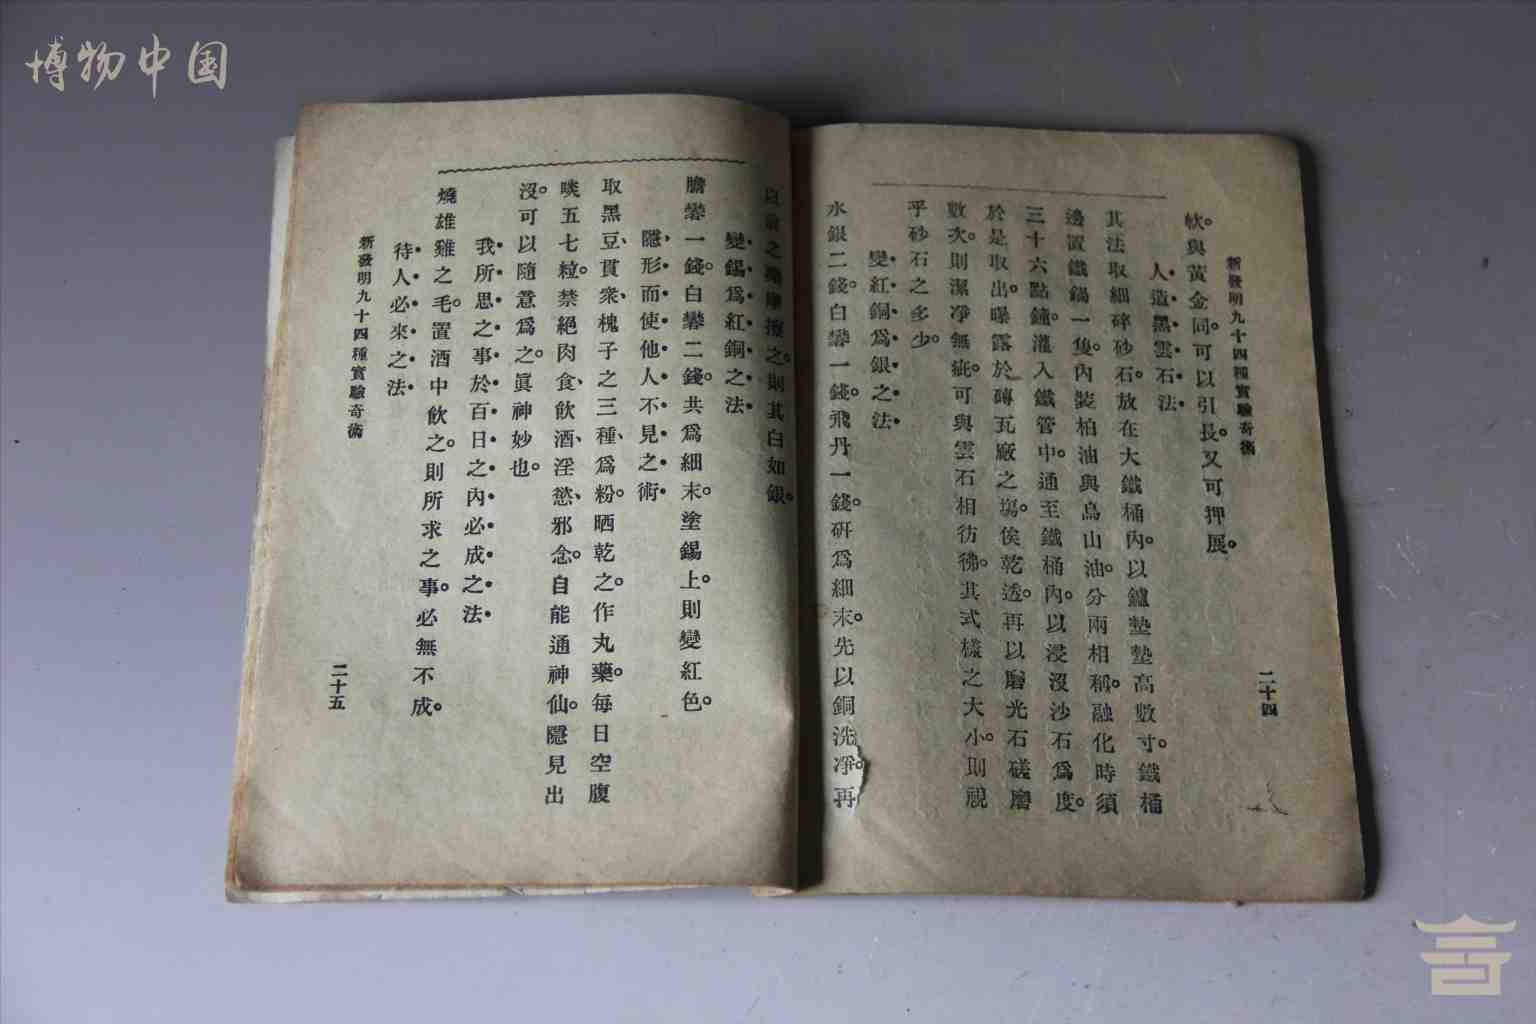 博物中国
新發明九十四種實驗奇術
二十四
軟。與黃金同。可以引長。又可押展。
人造黑雲石法
其法取細碎砂石。放在大鐵桶內。以鑪墊墊高數寸。鐵桶
邊置鐵鍋一隻。內裝柏油與鳥山油。分兩相稱。融化時須
三十六點鐘。灌入鐵管中。通至鐵桶內。以浸沒沙石爲度。
於是取出。曝露於磚瓦廠之塲。俟乾透。再以磨光石磋磨
數次。則潔凈無疵。可與雲石相彷彿。其式樣之大小。則視
乎砂石之多少。
變紅銅爲銀之法
水銀二錢。白礬一錢。飛丹一錢。研爲細末。先以銅洗凈。再
以前之藥摩擦之。則其白如銀。
變錫爲紅銅之法
膽礬一錢。白礬二錢。共爲細末。塗錫上。則變紅色。
隱形而使他人不見之術
取黑豆、貫衆、槐子之三種、爲粉。晒乾之。作丸藥。每日空腹
啖五七粒。禁絕肉食、飲酒、淫慾、邪念。自能通神仙。隱見出
沒。可以隨意爲之。眞神妙也。
我所思之事於百日之內必成之法
燒雄雞之毛。置酒中飲之。則所求之事。必無不成。
待人必來之法
新發明九十四種實驗奇術
二十五